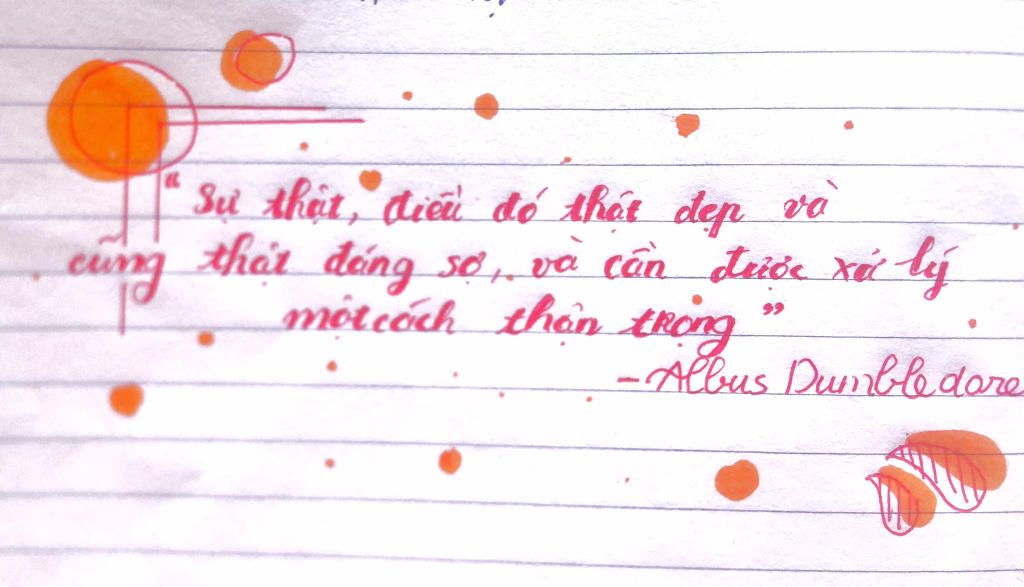 “ Sự thật, điều đó thật đẹp và
cũng thật đáng sợ, và cần được xử lý
một cách thận trọng ”
- Albus Dumbledore